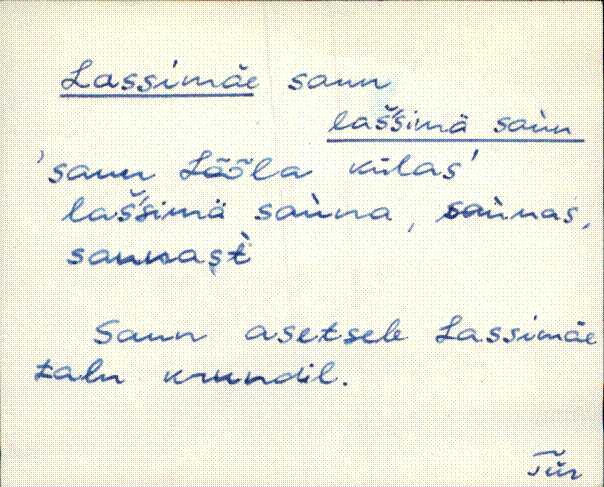 Lassimäe saun
laš̌šimä saùn
'saun Lõõla külas'
laš̌šimä saùna, saùnas,
saunast̀
Saun asetseb Lassimäe
talu krundil.
Tür